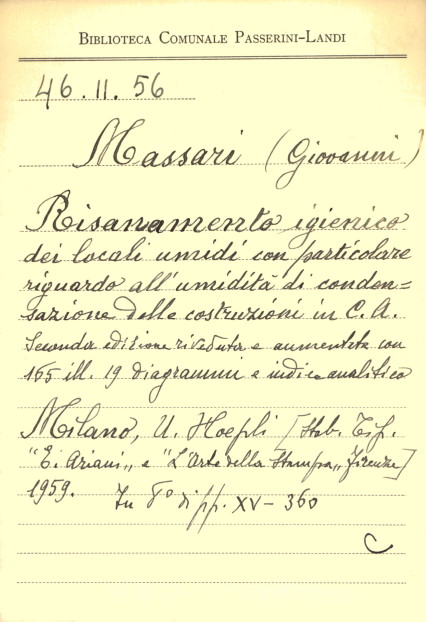 BIBLIOTECA COMUNALE PASSERINI-LANDI
46.II.56
Massari (Giovanni)
Risanamento igienico
dei locali umidi con particolare
riguardo all'umidità di conden=
sazione delle costruzioni in C. A.
Seconda edizione riveduta e aumentata con
165 ill. 19 diagrammi e indice analitico
Milano, U. Hoepli [Stab. Tip.
"E. Ariani" e "L'Arte della Stampa" Firenze]
1959. In 8° di pp. XV - 360
C